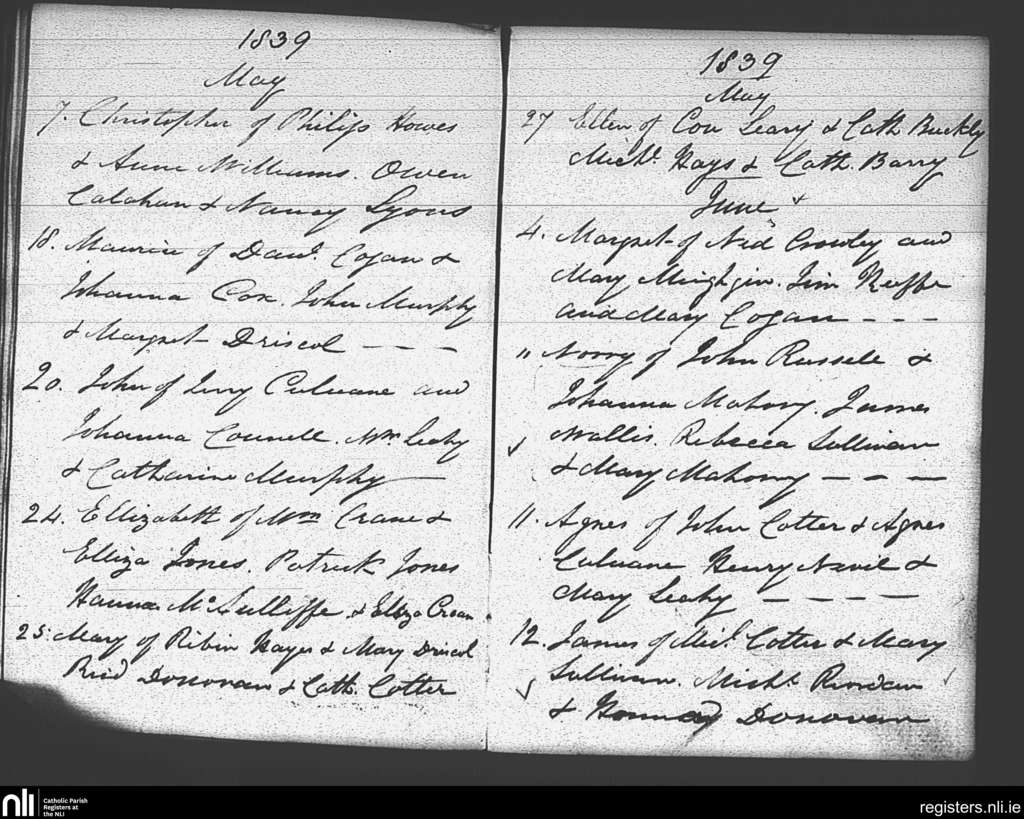 1839
May
7. Christopher of Philip Howes
& Anne Williams. Owen
Calahan & Nancy Lyons
18. Maurice of Davd. Cogan &
Johanna Cox. John Murphy
& Margret Driscol – – –
20. John of Jerry Culnane and
Johanna Connell. Wm Leahy
& Catharine Murphy —
24. Ellizabeth of Wm Crane &
Elliza Jones. Patrick Jones
Hanna McAulliffe & Elliza Crean
25. Mary of Robin Hayes & Mary Driscol
Donovan & Cath. Cotter
1839
May
27 Ellen of Con Leary & Cath Buckly
Michl. Hays & Cath. Barry
June
4. Margret of Ned Crowley and
Mary. Jim Keeffe
and Mary Cogan – – –
11 Norry of John Russele &
Johanna Mahony. James
Wallis. Rebecca Sullivan
& Mary Mahony – – –
11. Agnes of John Cotter & Agnes
Culnane Henry Nevil &
Mary Leahy – – – – –
12. James of Micl. Cotter & Mary
Sullivan. Michl. Riordan
& Donovan
nli
Catholic Parish
Registers at
the NLI
registers.nli.ie